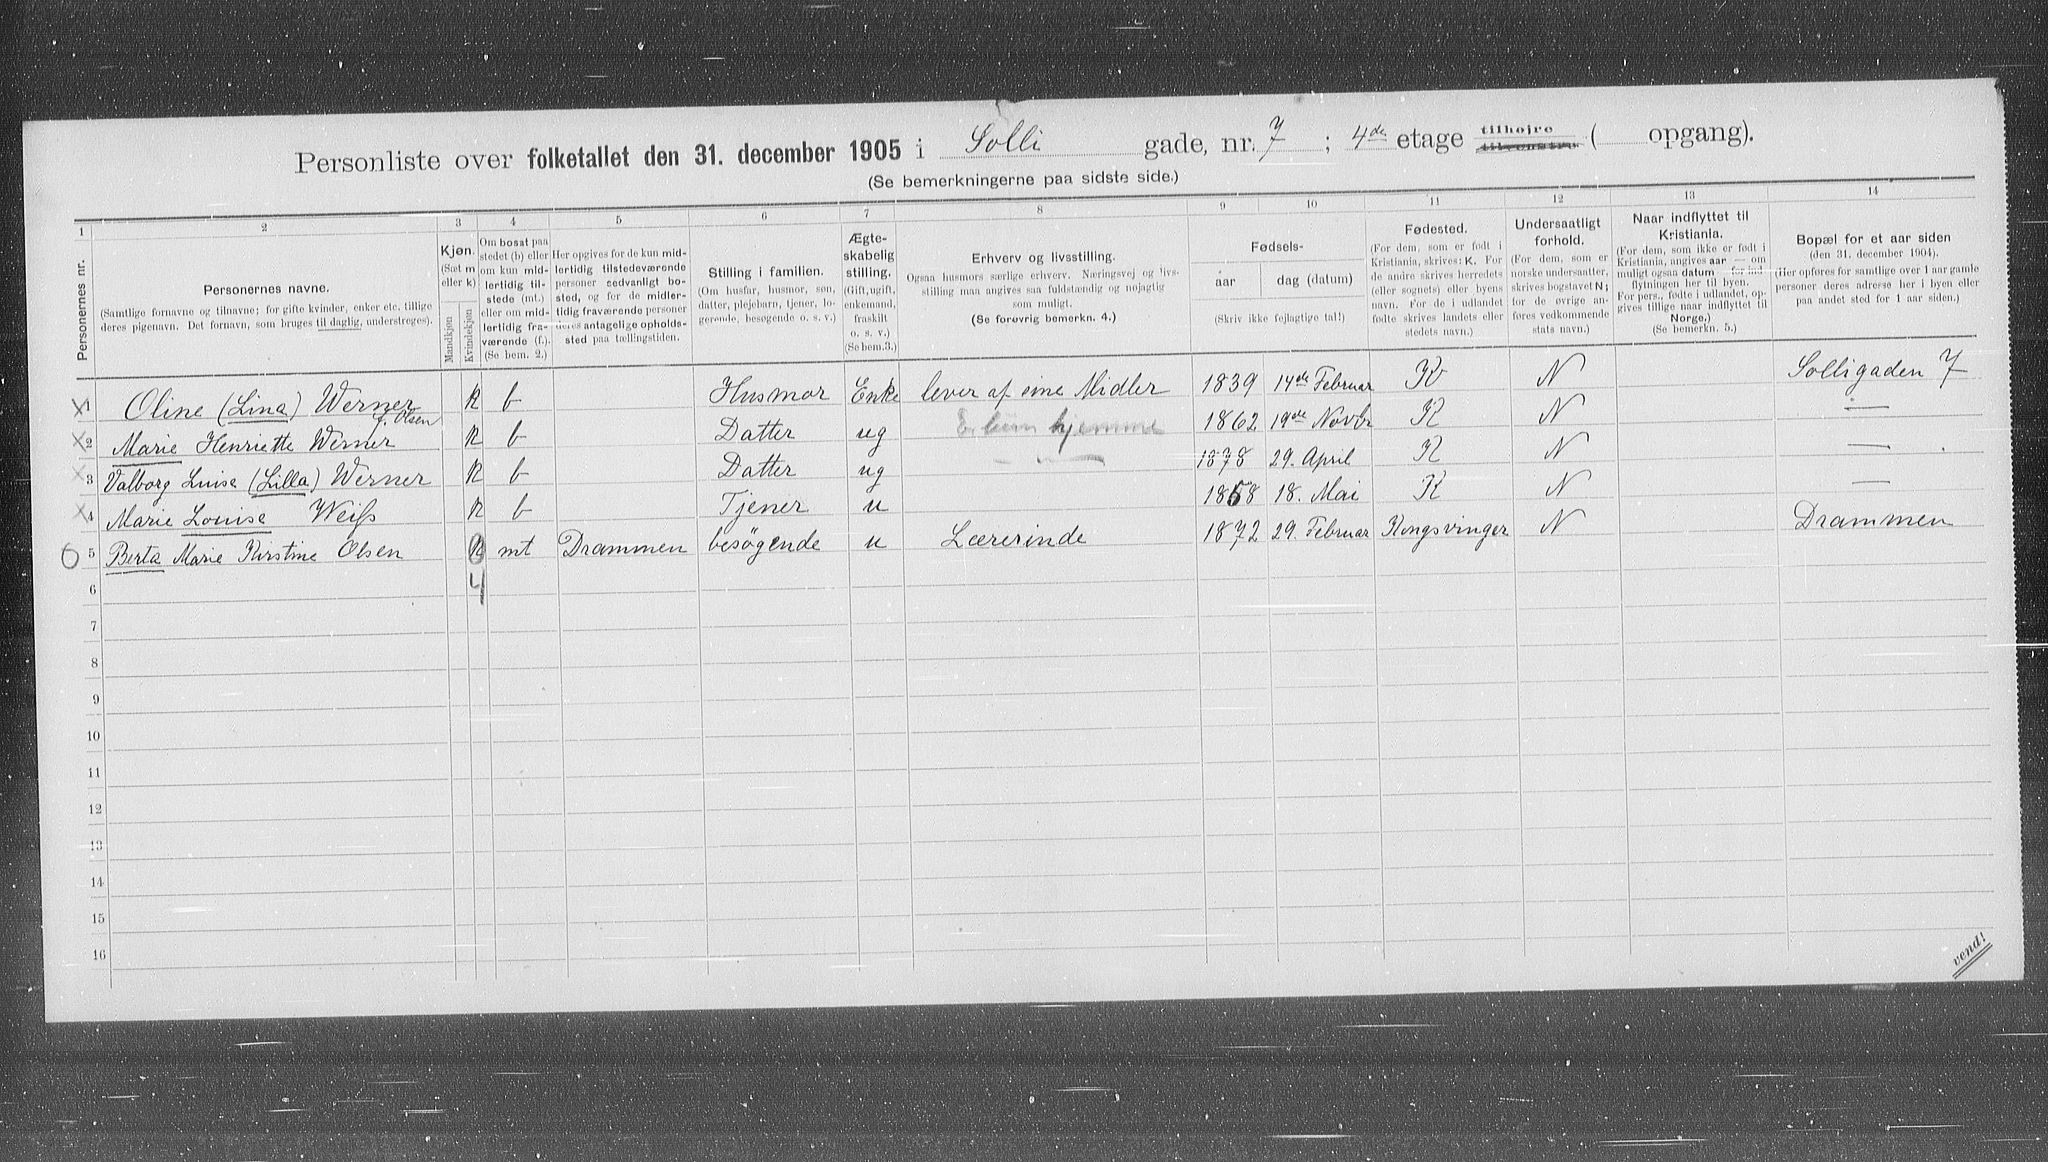 Personliste over folketallet den 31. december 1905 i Solli gade, nr. 7 ; 4de etage tilhøjre tilvenstre ( opgang).
(Se bemerkningerne paa sidste side.)
1 2 3 4 5 6 7 8 9 10 11 12 13 14
Personernes nr.
Personernes navne.
(Samtlige fornavne og tilnavne; for gifte kvinder, enker etc. tillige
deres pigenavn. Det fornavn, som bruges til daglig, understreges).
Kjøn.
(Sæt m
eller k)
Mandkjøn
Kvindekjøn
Om bosat paa
stedet (b) eller
om kun mid-
lertidig til-
stede (mt.)
eller om mid-
lertidig fra-
værende (f.).
(Se bem. 2.)
Her opgives for de kun mid-
lertidig tilstedeværende
personer sedvanligt bo-
sted, og for de midler-
tidig fraværende personer
deres antagelige opholds-
sted paa tællingstiden.
Stilling i familien.
(Om husfar, husmor, søn,
datter, plejebarn, tjener, lo-
gerende, besøgende o. s. v.)
Ægte-
skabelig
stilling.
(Gift, ugift,
enkemand,
fraskilt
o. s. v.)
(Se bem.3.)
Erhverv og livsstilling.
Ogsaa husmors særlige erhverv. Næringsvej og livs-
stilling maa angives saa fuldstændig og nøjagtig
som muligt.
(Se forøvrig bemerkn. 4.)
Fødsels-
aar dag (datum)
(Skriv ikke fejlagtige tal!)
Fødested.
(For dem, som er født i
Kristiania, skrives: K. For
de andre skrives herredets
(eller sognets) eller byens
navn. For de i udlandet
fødte skrives landets eller
stedets navn.)
Undersaatligt
forhold.
(For dem, som er
norske undersaatter,
skrives bogstavet N;
for de øvrige an-
føres vedkommende
stats navn.)
Naar indflyttet til
Kristiania.
(For dem, som ikke er født i
Kristiania, angives aar — om
muligt ogsaa datum — for ind-
flytningen her til byen.
For pers., fødte i udlandet, op-
gives tillige naar indflyttet til
Norge.)
(Se bemerkn. 5.)
Bopæl for et aar siden
(den 31. december 1904).
(Her opføres for samtlige over 1 aar gamle
personer deres adresse her i byen eller
paa andet sted for 1 aar siden.)
x 1 Oline (Lina) Werner f. Olsen K b Husmor Enke lever af sine Midler 1839 14de Februar K N Solligaden 7
x 2 Marie Henriette Werner K b Datter ug hjemme 1862 19de Novbr K N —
x 3 Valborg Luise (Lilla) Werner K b Datter ug — 1878 29. April K N —
x 4 Marie Louise Weiss K b Tjener u 1858 18. Mai K N —
0 5 Berta Marie Kirstine Olsen K mt Drammen besøgende u Lærerinde 1872 29. Februar Kongsvinger N Drammen
6 4
7
8
9
10
11
12
13
14
15
16
vend!